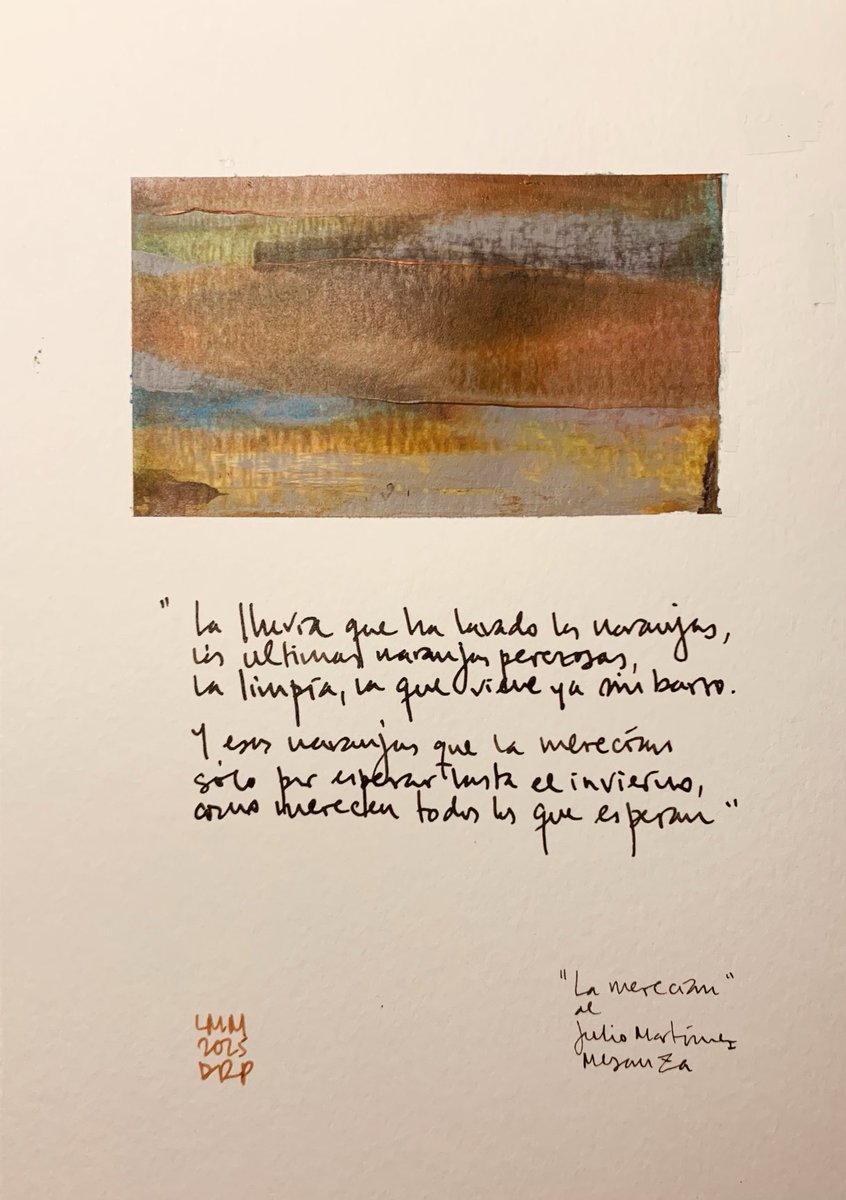 " La lluvia que ha lavado las naranjas,
las ultimas naranjas perezosas,
la limpia, la que viene ya sin barro.
Y esas naranjas que la merecían
sólo por esperar hasta el invierno,
como merecen todos los que esperan "
"La merecían"
de
Julio Martínez
Mesanza
LMM
2025
DRP